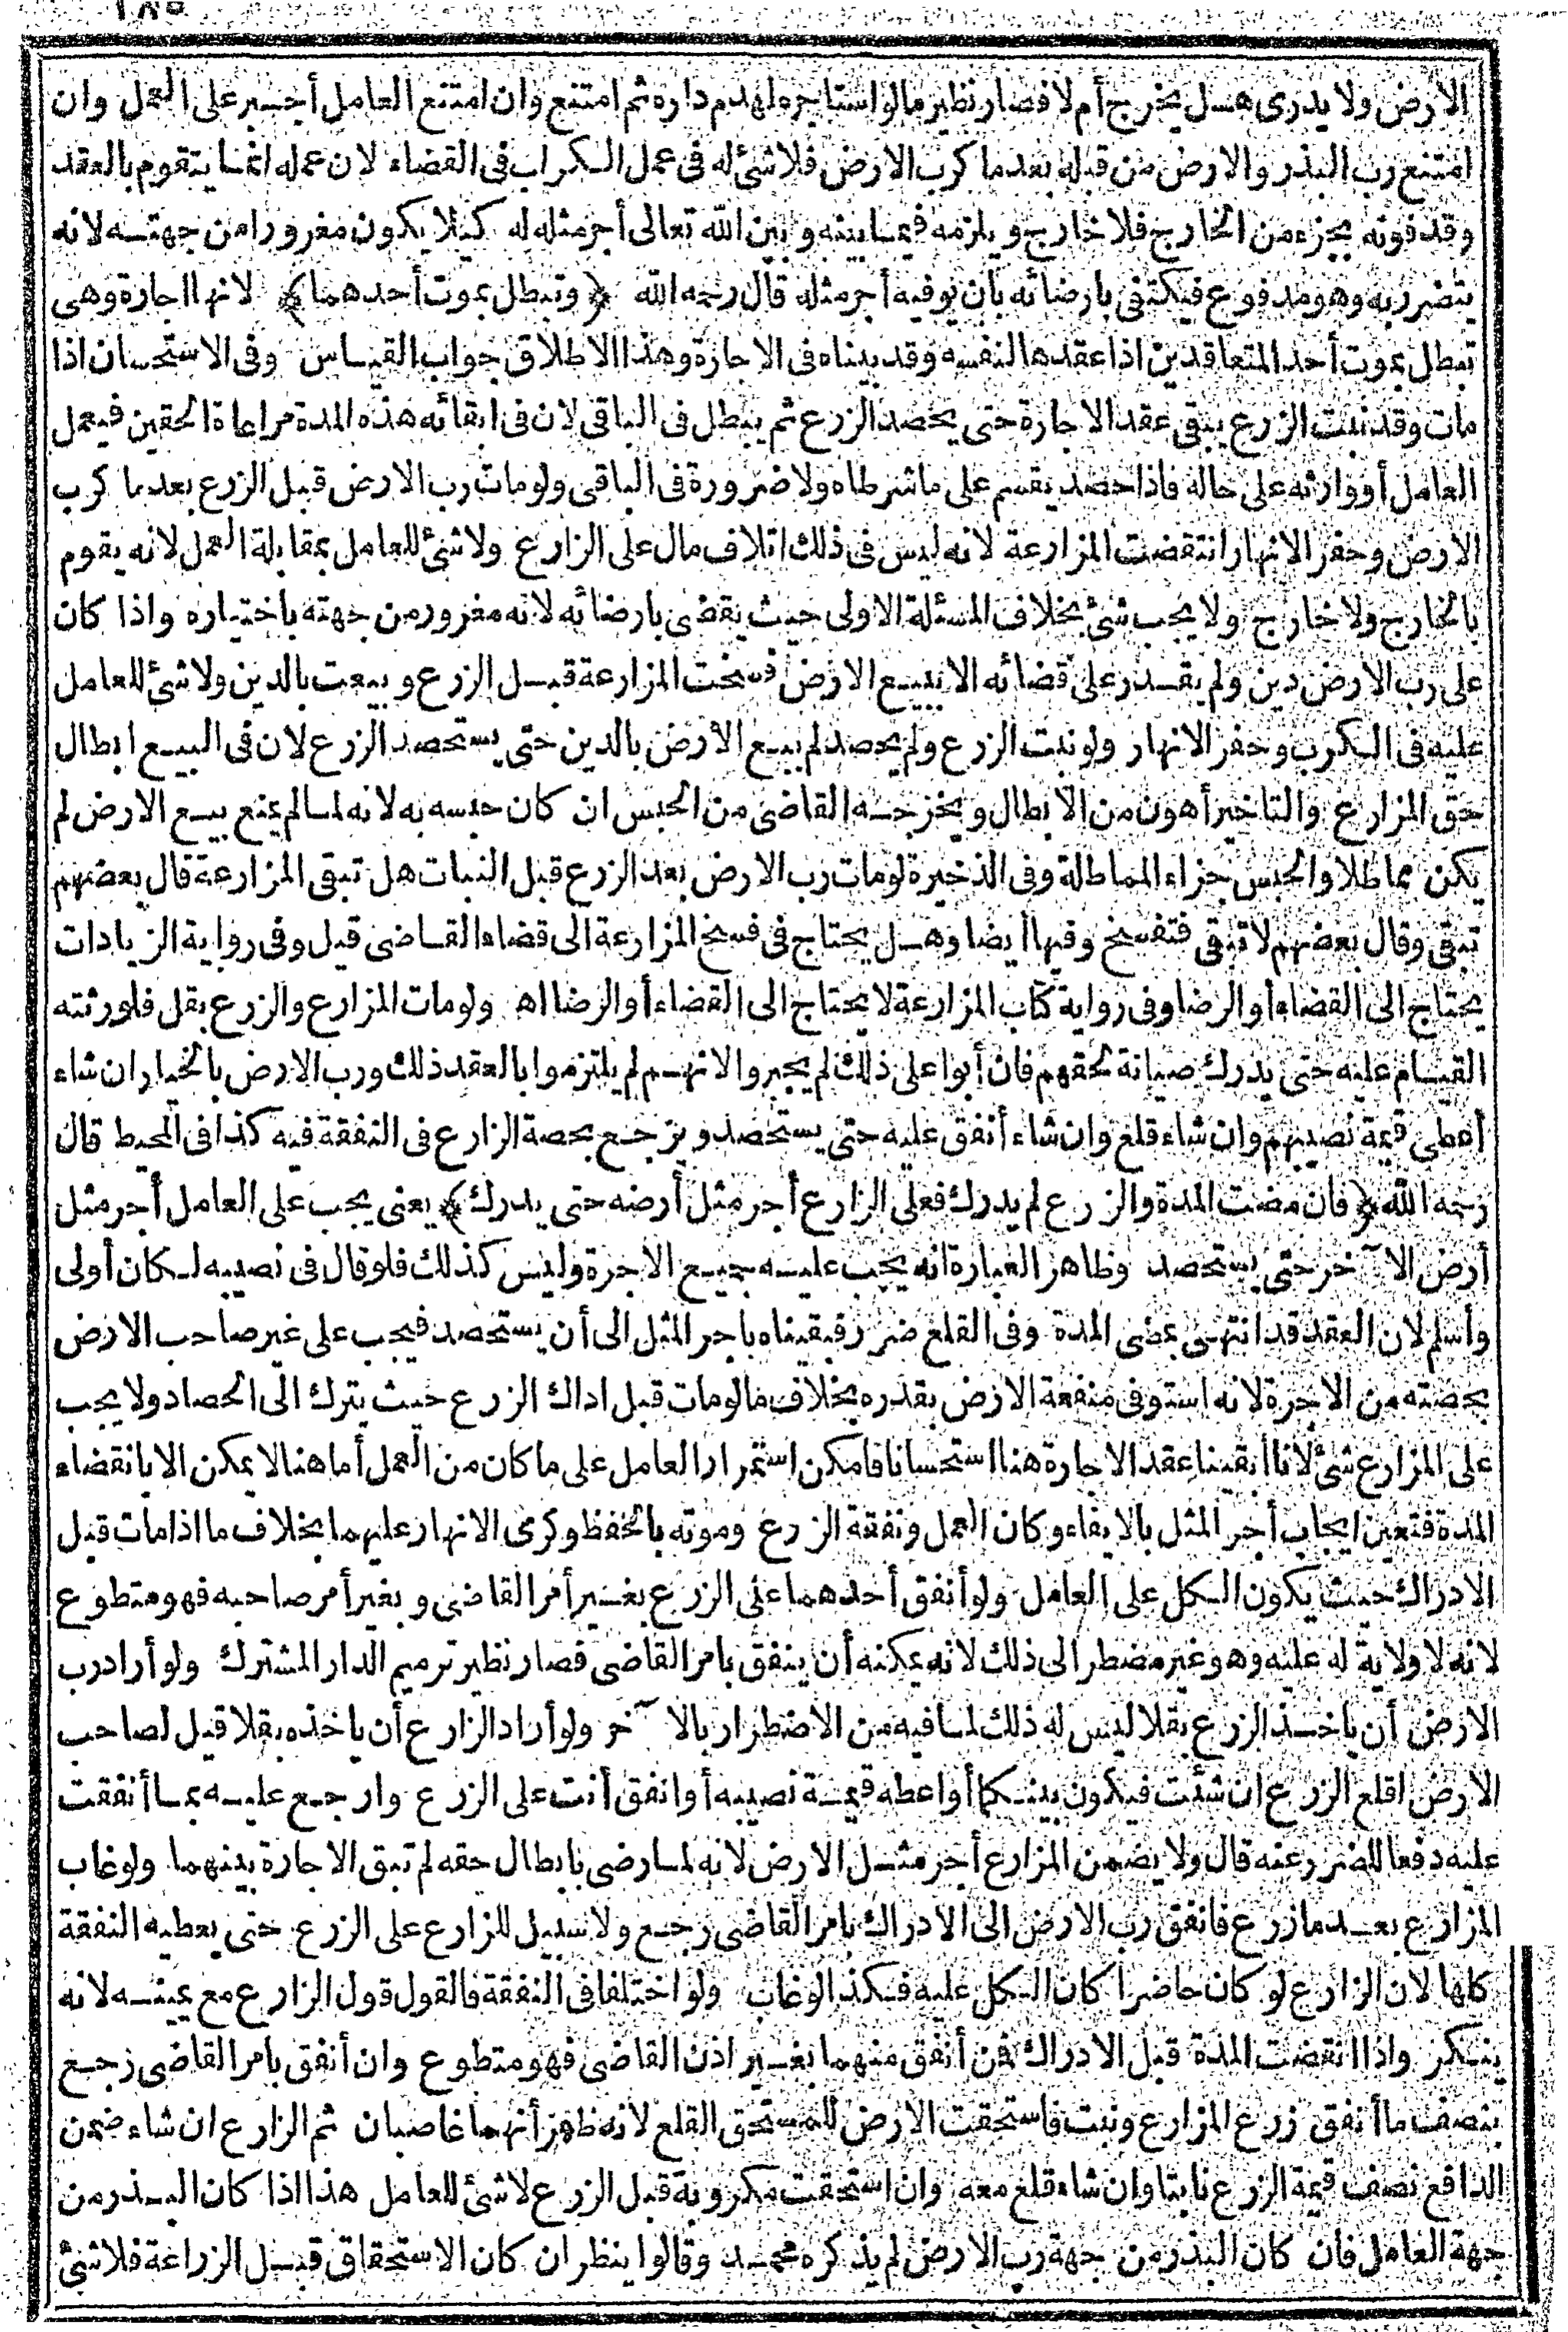 ١٨٥
الارض ولا يدرى هل يخرج أم لا فصار نظير مالو استاجره لهدم داره ثم امتنع وان امتنع العامل أجبر على العمل وان
امتنع رب البذر والارض من قبله بعدما كرب الارض فلا شئ له فى عمل الكراب فى القضاء لان عمله انما يتقوم بالعقد
وقد فوته بجزء من الخارج فلا خارج و يلزمه فيما بينه و بين الله تعالى أجر مثله له كيلا يكون مغرورا من جهته لانه
يتضرر به وهو مدفوع فيكتفى بارضائه بان يوفيه أجر مثله قال رحمه الله ﴿وتبطل بموت أحدهما﴾ لانها اجارة وهى
تبطل بموت أحد المتعاقدين اذا عقدها لنفسه وقد بيناه فى الاجارة وهذا الاطلاق جواب القياس وفى الاستحسان اذا
مات وقد نبت الزرع يبقى عقد الاجارة حتى يحصد الزرع ثم يبطل فى الباقى لان فى ابقائه هذه المدة مراعاة الحقين فيعمل
العامل أو وارثه على حاله فاذا حصد يقسم على ما شرطاه ولا ضرورة فى الباقى ولو مات رب الارض قبل الزرع بعدما كرب
الارض وحفر الانهار انتقضت المزارعة لانه ليس فى ذلك اتلاف مال على الزارع ولا شئ للعامل بمقابلة العمل لانه يقوم
بالخارج ولا خارج ولا يجب شئ بخلاف المسئلة الاولى حيث يقضى بارضائه لانه مغرور من جهته باختياره واذا كان
على رب الارض دين ولم يقدر على قضائه الا ببيع الارض فسخت المزارعة قبل الزرع و بيعت بالدين ولا شئ للعامل
عليه فى الكرب وحفر الانهار ولو نبت الزرع ولم يحصد لم يبع الارض بالدين حتى يستحصد الزرع لان فى البيع ابطال
حق المزارع والتاخير أهون من الابطال و يخرجه القاضى من الحبس ان كان حبسه به لانه لما لم يمنع بيع الارض لم
يكن مماطلا والحبس جزاء المماطلة وفى الذخيرة لو مات رب الارض بعد الزرع قبل النبات هل تبقى المزارعة قال بعضهم
تبقى وقال بعضهم لا تبقى فتفسخ وفيها أيضا وهل يحتاج فى فسخ المزارعة الى قضاء القاضى قيل وفى رواية الزيادات
يحتاج الى القضاء أو الرضا وفى رواية كتاب المزارعة لا يحتاج الى القضاء أو الرضا اه ولو مات المزارع والزرع بقل فلورثته
القيام عليه حتى يدرك صيانة لحقهم فان أبوا على ذلك لم يجبروا لانهم لم يلتزموا بالعقد ذلك ورب الارض بالخيار ان شاء
أعطى قيمة نصيبهم وان شاء قلع وان شاء أنفق عليه حتى يستحصد و يرجع بحصة الزارع فى النفقة فيه كذا فى المحيط قال
رحمه الله ﴿فان مضت المدة والزرع لم يدرك فعلى الزارع أجر مثل أرضه حتى يدرك﴾ يعنى يجب على العامل أجر مثل
أرض الآخر حتى يستحصد وظاهر العبارة انه يجب عليه جميع الاجرة وليس كذلك فلو قال فى نصيبه لكان أولى
وأسلم لان العقد قد انتهى بمضى المدة وفى القلع ضرر فبقيناه باجر المثل الى أن يستحصد فيجب على غير صاحب الارض
بحصته من الاجرة لانه استوفى منفعة الارض بقدره بخلاف مالو مات قبل اداك الزرع حيث يترك الى الحصاد ولا يجب
على المزارع شئ لانا أبقينا عقد الاجارة هنا استحسانا فامكن استمرار العامل على ما كان من العمل أما هنا لا يمكن الا بانقضاء
المدة فتعين ايجاب أجر المثل بالابقاء وكان العمل ونفقة الزرع وموته بالحفظ وكرى الانهار عليهما بخلاف ما اذا مات قبل
الادراك حيث يكون الكل على العامل ولو أنفق أحدهما على الزرع بغير أمر القاضى و بغير أمر صاحبه فهو متطوع
لانه لا ولاية له عليه وهو غير مضطر الى ذلك لانه يمكنه أن ينفق بامر القاضى فصار نظير ترميم الدار المشترك ولو أراد رب
الارض أن ياخذ الزرع بقلا ليس له ذلك لما فيه من الاضطرار بالآخر ولو أراد الزارع أن ياخذه بقلا قيل لصاحب
الارض اقلع الزرع ان شئت فيكون بينكما أو اعطه قيمة نصيبه أو انفق أنت على الزرع وارجع عليه بما أنفقت
عليه دفعا للضرر عنه قال ولا يضمن المزارع أجر مثل الارض لانه لما رضى بابطال حقه لم تبق الاجارة بينهما ولو غاب
المزارع بعدما زرع فانفق رب الارض الى الادراك بامر القاضى رجع ولا سبيل للزارع على الزرع حتى يعطيه النفقة
كلها لان الزارع لو كان حاضرا كان الكل عليه فكذا لو غاب ولو اختلفا فى النفقة فالقول قول الزارع مع يمينه لانه
ينكر واذا انقضت المدة قبل الادراك فمن أنفق منهما بغير اذن القاضى فهو متطوع وان أنفق بامر القاضى رجع
بنصف ما أنفق زرع المزارع ونبت فاستحقت الارض للمستحق القلع لانه ظهر أنهما غاصبان ثم الزارع ان شاء ضمن
الدافع نصف قيمة الزرع نابتا وان شاء قلع معه وان استحقت مكروبة قبل الزرع لا شئ للعامل هذا اذا كان البذر من
جهة العامل فان كان البذر من جهة رب الارض لم يذكره محمد وقالوا ينظر ان كان الاستحقاق قبل الزراعة فلا شئ